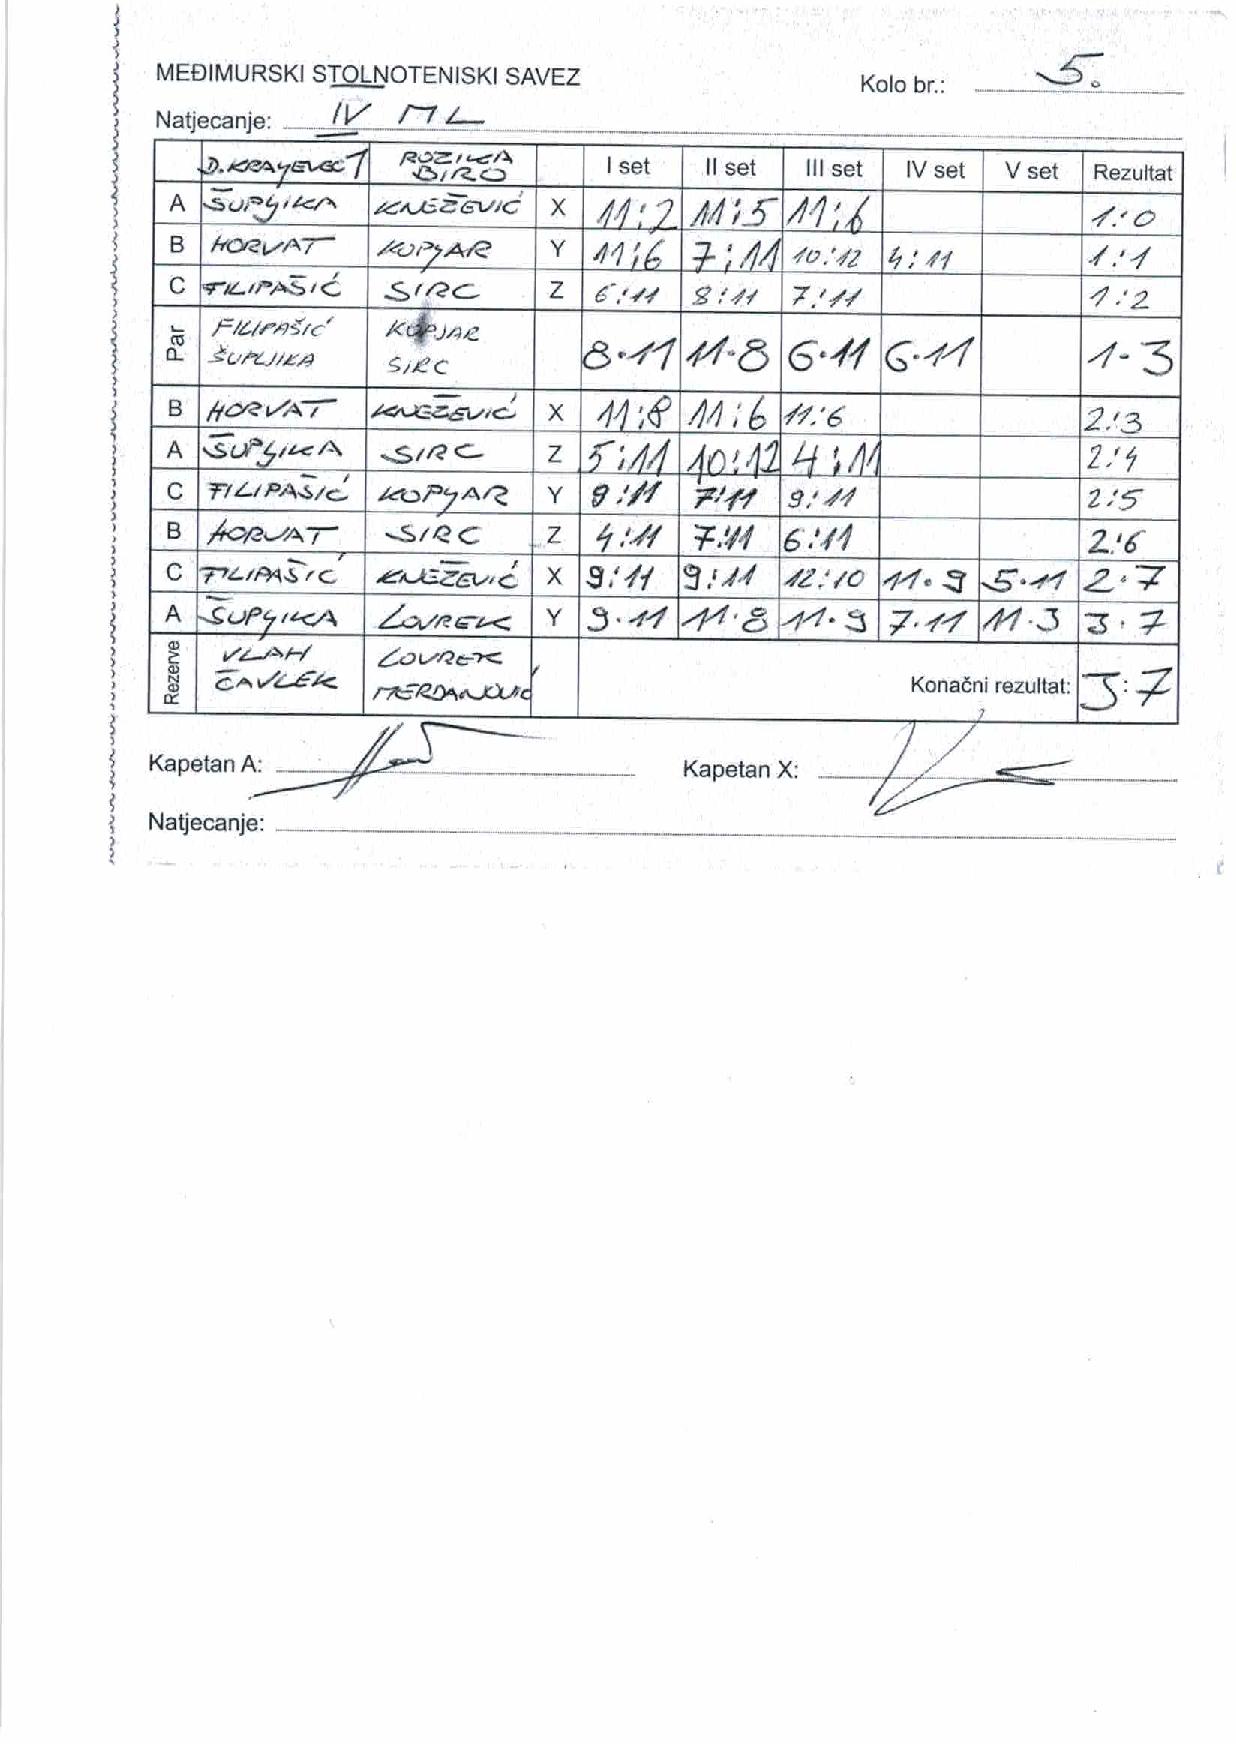 MEĐIMURSKI STOLNOTENISKI SAVEZ
Kolo br.: 5.
Natjecanje: IV ML
D. KRALJEVEC 1 ROZIKA BIRO I set II set III set IV set V set Rezultat
A ŠUPLJIKA KNEŽEVIĆ X 11:2 11:5 11:6 1:0
B HORVAT KOPJAR Y 11:6 7:11 10:12 4:11 1:1
C FILIPAŠIĆ SIRC Z 6:11 8:11 7:11 1:2
Par FILIPAŠIĆ KOPJAR
ŠUPLJIKA SIRC 8·11 11·8 6·11 6·11 1-3
B HORVAT KNEŽEVIĆ X 11:8 11:6 11:6 2:3
A ŠUPLJIKA SIRC Z 5:11 10:12 4:11 2:4
C FILIPAŠIĆ KOPJAR Y 9:11 7:11 9:11 2:5
B HORVAT SIRC Z 4:11 7:11 6:11 2:6
C FILIPAŠIĆ KNEŽEVIĆ X 9:11 9:11 12:10 11·9 5·11 2·7
A ŠUPLJIKA LOVREK Y 9·11 11·8 11·9 7·11 11·3 3·7
Rezerve VLAH LOVREK
ČAVLEK MERDANOVIĆ Konačni rezultat: 3:7
Kapetan A: Kapetan X:
Natjecanje: